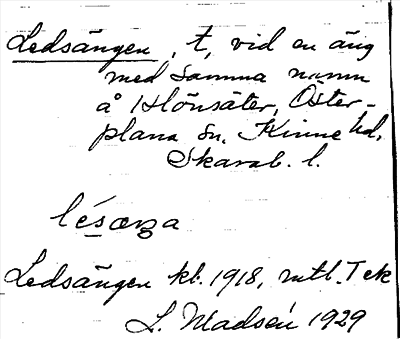 Ledsängen, t, vid en äng
med samma namn
å Hönsäter, Öster-
plana sn. Kinne hd,
Skarab. l.
lésæŋa
Ledsängen kb. 1918, mtl. T ek
L. Madsén 1929